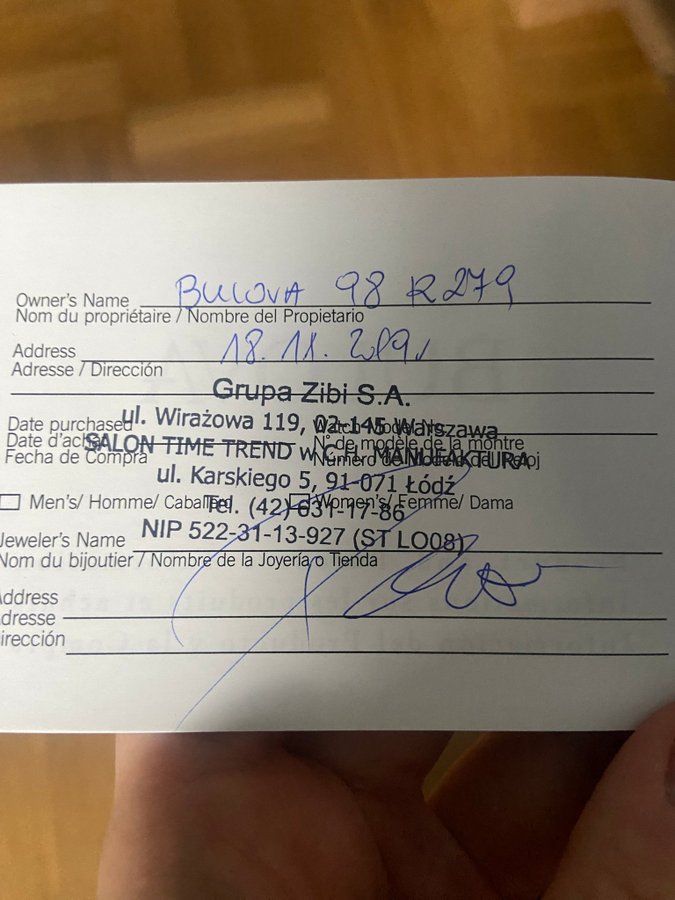 Owner's Name BULOVA 98 R279
Nom du propriétaire / Nombre del Propietario
Address 18.11.2019
Adresse / Dirección
Grupa Zibi S.A.
ul. Wirażowa 119, 02-145 Warszawa
Date purchased
SALON TIME TREND w C.H. MANUFAKTURA
N° de modèle de la montre
Fecha de Compra
ul. Karskiego 5, 91-071 Łódź
Men's/ Homme/ Caballero Women's/ Femme/ Dama
Tel. (42) 631-17-86
NIP 522-31-13-927 (ST LO08)
Jeweler's Name
Nom du bijoutier / Nombre de la Joyería o Tienda
Address
Adresse
Dirección